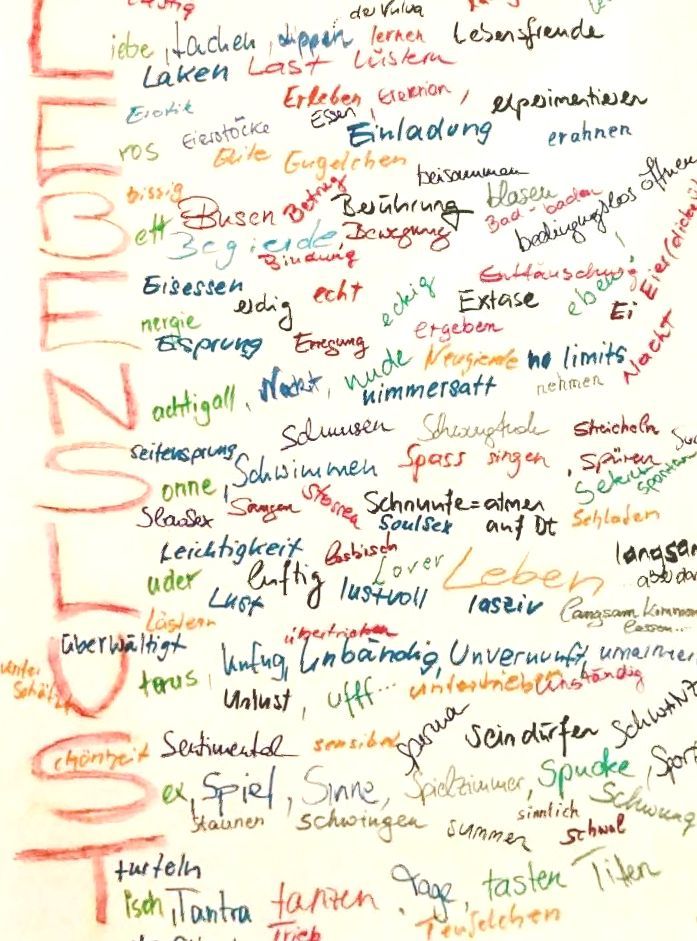 der Vulva
iebe, lachen, lippen lernen Lebensfreude
Laken Last lüstern
Erotik Erleben Erektion, experimentieren
Essen
ros Eierstöcke Elite Einladung erahnen
Eugelchen
bissig beisammen blasen öffnen
ett Busen Betrug Berührung Bad-baden bedingungslos
Begierde, Bewegung
Bindung
Eisessen erdig echt eckig Enttäuschung eben! Eier(dicke)
nergie Extase Ei
Eisprung Erregung ergeben Nacht
achtigall, Nackt, nude Neugierde no limits
nimmersatt nehmen
Seitensprung Schmusen streicheln
onne, Schwimmen Spass singen, spüren
SlowSex Saugen Stossen Schnufe=atmen Schladen
SoulSex auf Dt
Leichtigkeit lesbisch Lover Leben langsam
uder luftig lustvoll lasziv
Lust langsam kommen
Lästern lassen...
überwältigt übertrieben
unter terus, Unfug, Unbändig, Unvernunft, umarmen
Unlust, ufff... untertrieben Unständig
chönheit Sentimental sensibel Sperma Sein dürfen SchwANZ
ex, Spiel, Sinne, Spielzimmer, Spucke,
staunen schwingen summer sinnlich schwul Schwung
turteln
isch, Tantra tanzen Tage, tasten Titten
Trieb Teufelchen